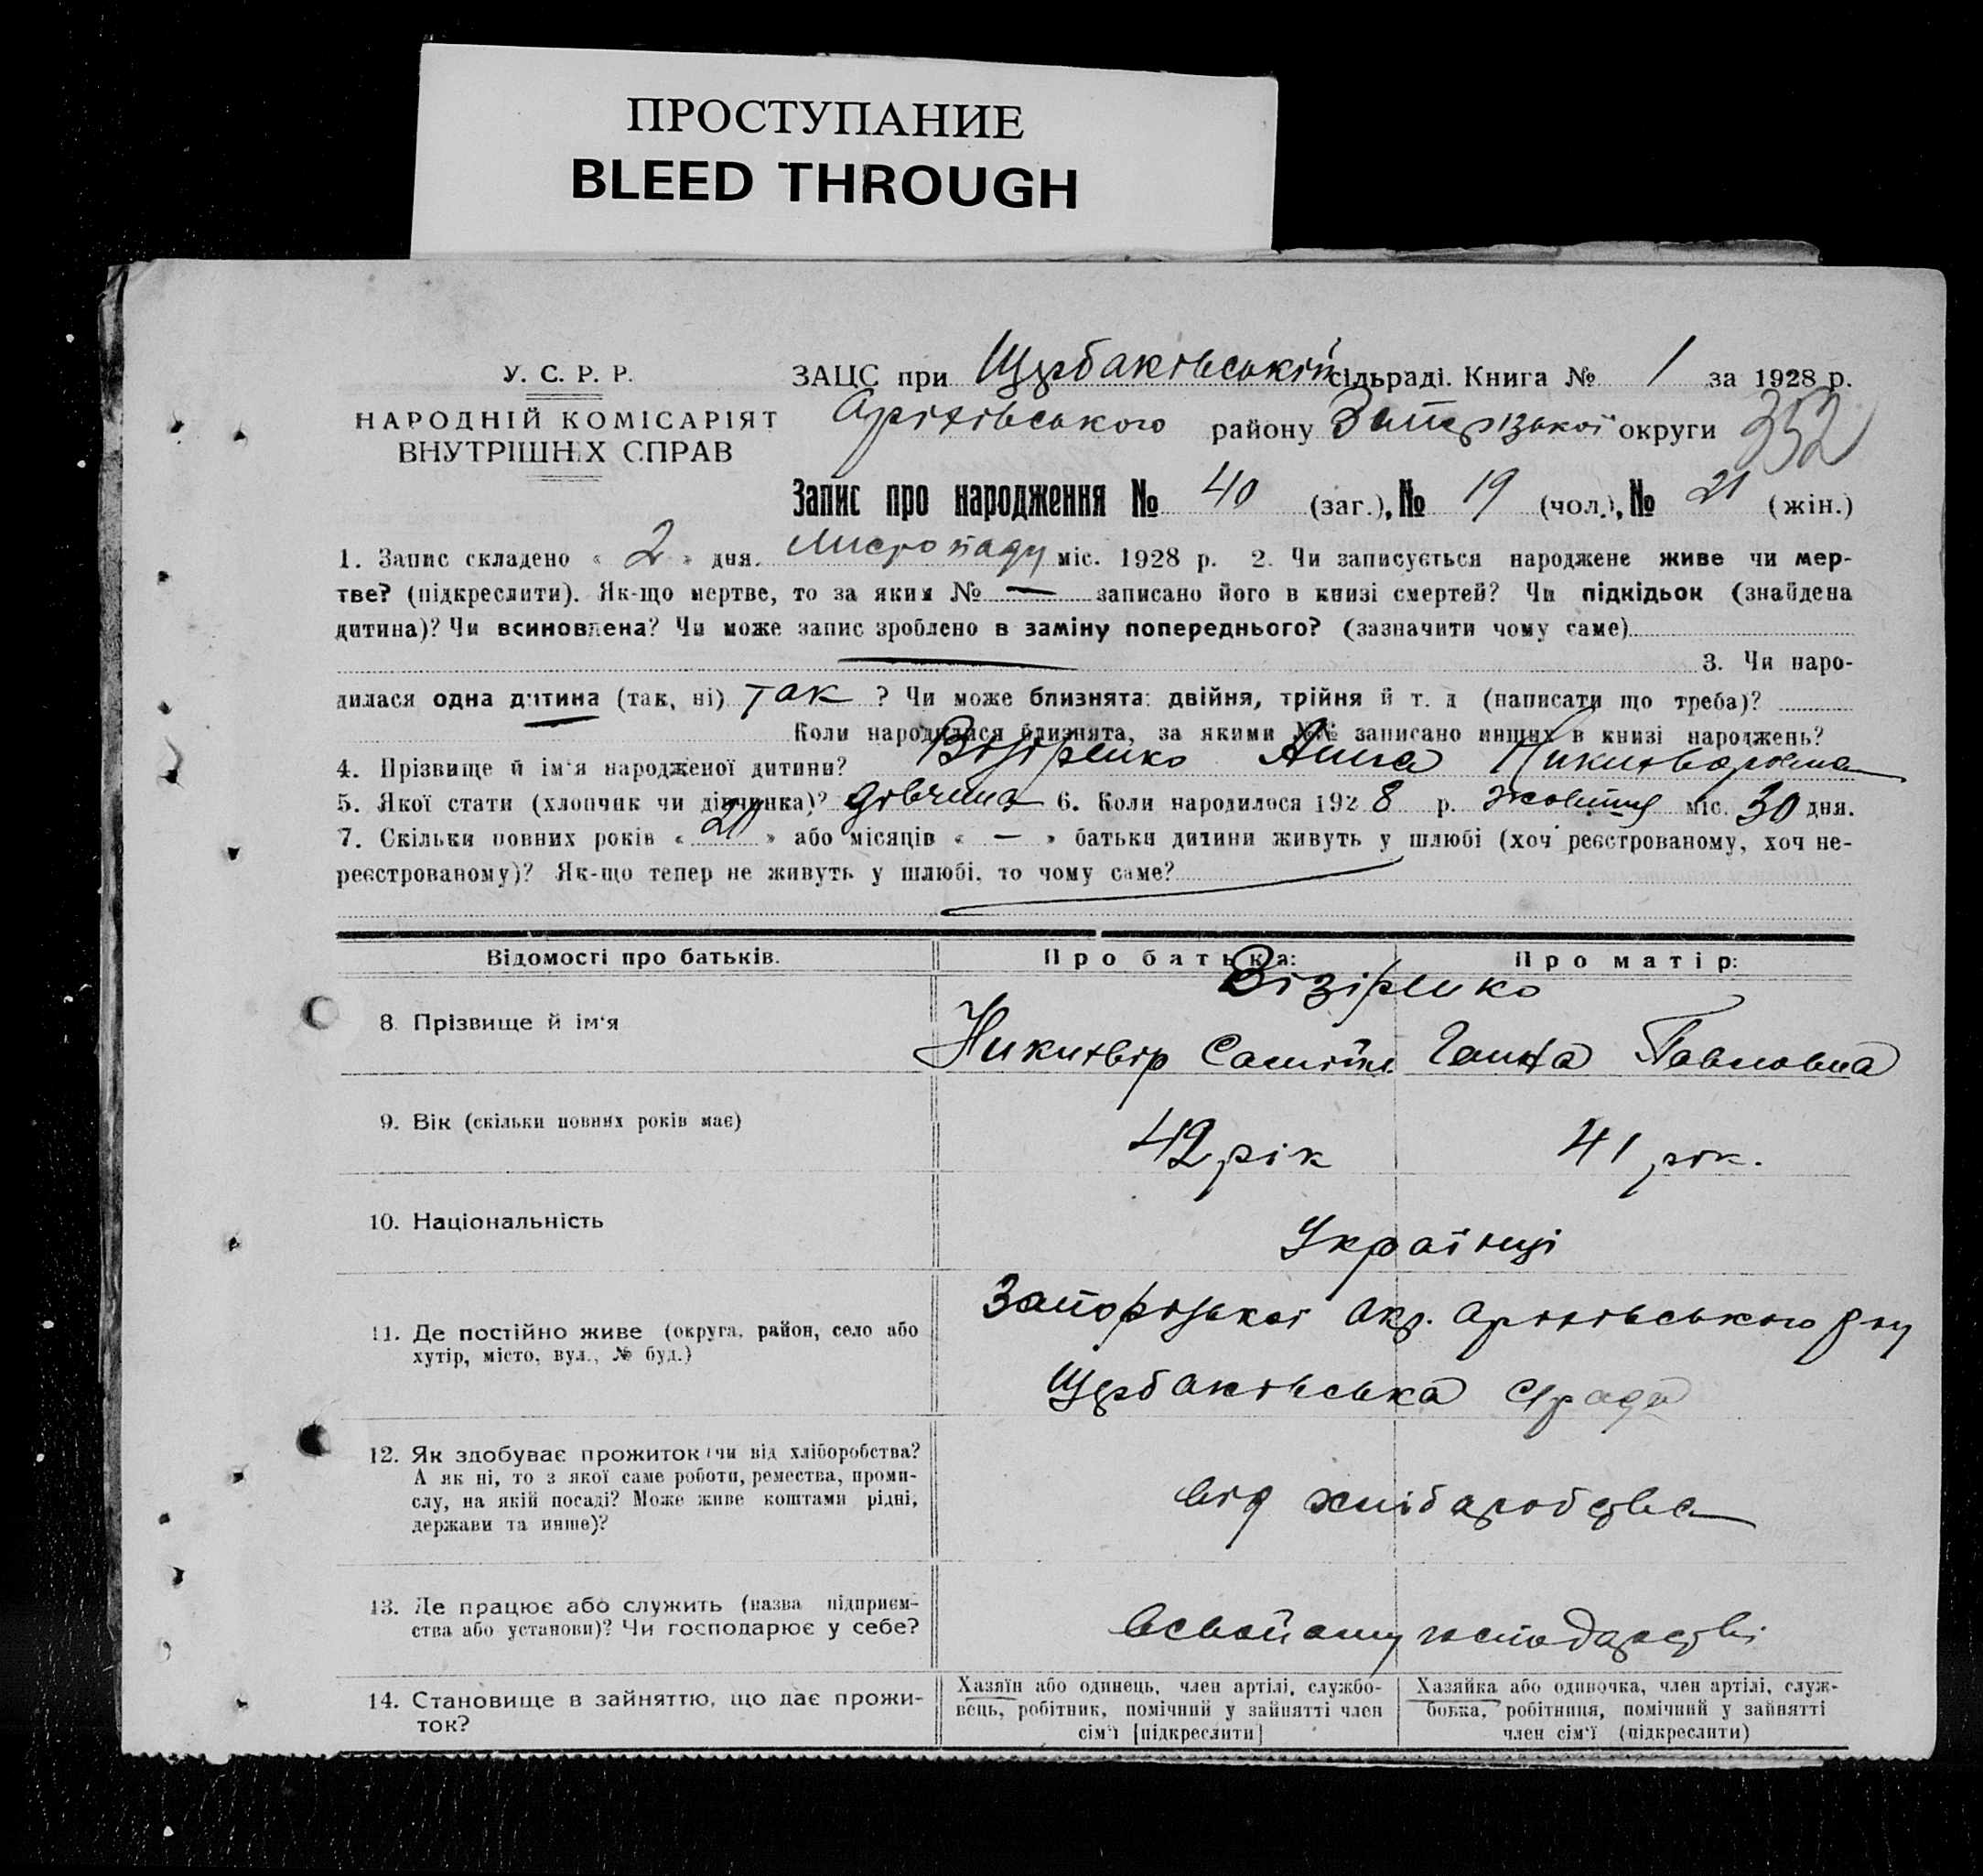 ПРОСТУПАНИЕ
BLEED THROUGH
У. С. Р. Р.
НАРОДНІЙ КОМІСАРІЯТ
ВНУТРІШНІХ СПРАВ
ЗАЦС при Щербаківській сільраді. Книга № 1 за 1928 р.
Оріхівського району Запорізької округи 352
Запис про народження № 40 (заг.), № 19 (чол.), № 21 (жін.)
1. Запис складено « 2 » дня. Листопаду міс. 1928 р. 2. Чи записується народжене живе чи мер-
тве? (підкреслити). Як-що мертве, то за яким № — записано його в книзі смертей? Чи підкідьок (знайдена
дитина)? Чи всиновлена? Чи може запис зроблено в заміну попереднього? (зазначити чому саме)
3. Чи наро-
дилася одна дитина (так, ні) так ? Чи може близнята: двійня, трійня й т. д (написати що треба)?
Коли народилися близнята, за якими №№ записано инших в книзі народжень?
4. Прізвище й ім'я народженої дитини? Візіренко Анна
5. Якої статі (хлопчик чи дівчинка)? дівчина 6. Коли народилося 1928 р. жовтня міс. 30 дня.
7. Скільки повних років « 21 » або місяців « — » батьки дитини живуть у шлюбі (хоч реєстрованому, хоч не-
реєстрованому)? Як-що тепер не живуть у шлюбі, то чому саме?
Відомості про батьків. Про батька: Про матір:
Візіренко
8. Прізвище й ім'я Никифір Ганна Павловна
9. Вік (скільки повних років має) 42 рік 41 рік.
10. Національність Українці
11. Де постійно живе (округа, район, село або
хутір, місто, вул., № буд.)
Запорізької Окр. Оріхівського р-ну
Щербаківська с/рада
12. Як здобуває прожиток (чи від хліборобства?
А як ні, то з якої саме роботи, ремества, проми-
слу, на якій посаді? Може живе коштами рідні,
держави та инше)?
від хліборобства
13. Де працює або служить (назва підприєм-
ства або установи)? Чи господарює у себе?
всвойому господарстві
14. Становище в зайняттю, що дає прожи-
ток?
Хазяїн або одинець, член артілі, службо-
вець, робітник, помічний у зайнятті член
сім'ї [підкреслити]
Хазяйка або одиночка, член артілі, служ-
бовка, робітниця, помічний у зайнятті
член сім'ї (підкреслити)